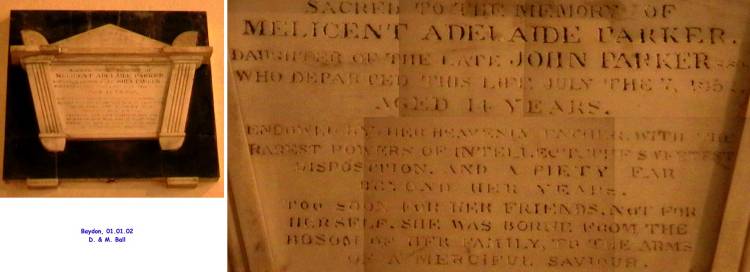 SACRED TO THE MEMORY OF
MELICENT ADELAIDE PARKER.
DAUGHTER OF THE LATE JOHN PARKER
WHO DEPARTED THIS LIFE JULY THE 7,
AGED 14 YEARS.
ENDOWED BY HER HEAVENLY FATHER, WITH THE
RAREST POWERS OF INTELLECT, THE SWEETEST
DISPOSITION, AND A PIETY FAR
BEYOND HER YEARS.
TOO SOON FOR HER FRIENDS, NOT FOR
HERSELF, SHE WAS BORNE FROM THE
BOSOM OF HER FAMILY, TO THE ARMS
OF A MERCIFUL SAVIOUR.
Baydon, 01.01.02
D. & M. Ball